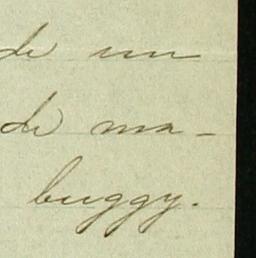 de un
de ma-
buggy.